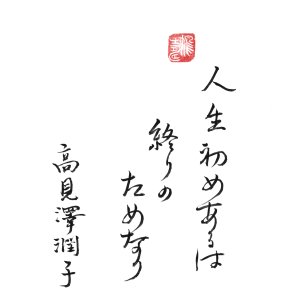 人生初めあるは
終りの
ためなり
高見澤潤子